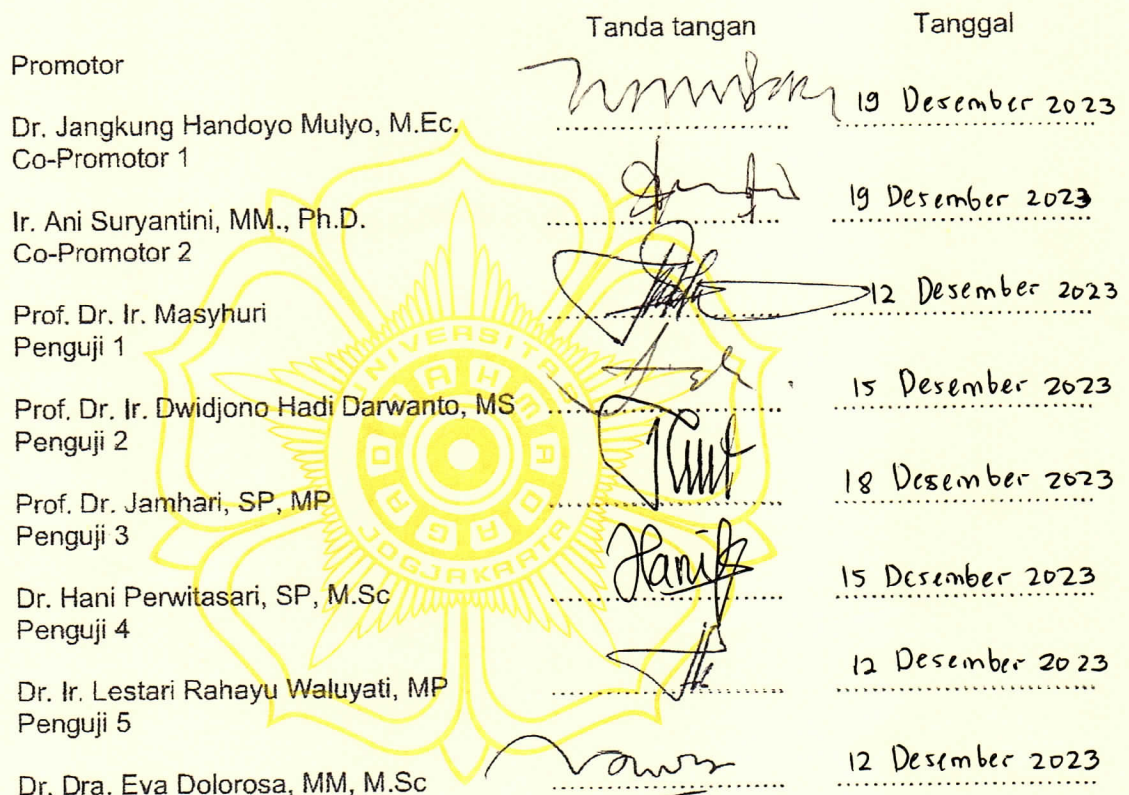 Tanda tangan Tanggal
Promotor
Dr. Jangkung Handoyo Mulyo, M.Ec. 19 Desember 2023
Co-Promotor 1
Ir. Ani Suryantini, MM., Ph.D. 19 Desember 2023
Co-Promotor 2
Prof. Dr. Ir. Masyhuri 12 Desember 2023
Penguji 1
Prof. Dr. Ir. Dwidjono Hadi Darwanto, MS 15 Desember 2023
Penguji 2
Prof. Dr. Jamhari, SP, MP 18 Desember 2023
Penguji 3
Dr. Hani Perwitasari, SP, M.Sc 15 Desember 2023
Penguji 4
Dr. Ir. Lestari Rahayu Waluyati, MP 12 Desember 2023
Penguji 5
Dr. Dra. Eva Dolorosa, MM, M.Sc 12 Desember 2023
UNIVERSITAS
GADJAH MADA
JOGJAKARTA